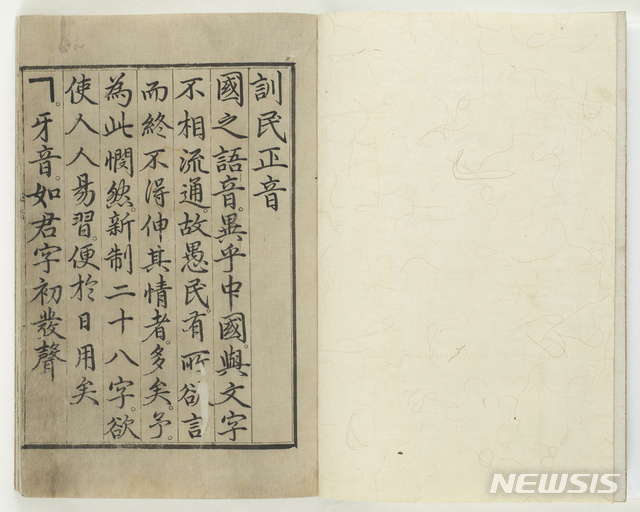 訓民正音
國之語音。異乎中國。與文字
不相流通。故愚民。有所欲言
而終不得伸其情者。多矣。予。
為此憫然。新制二十八字。欲
使人人易習。便於日用矣
ㄱ。牙音。如君字初發聲
NEWSIS